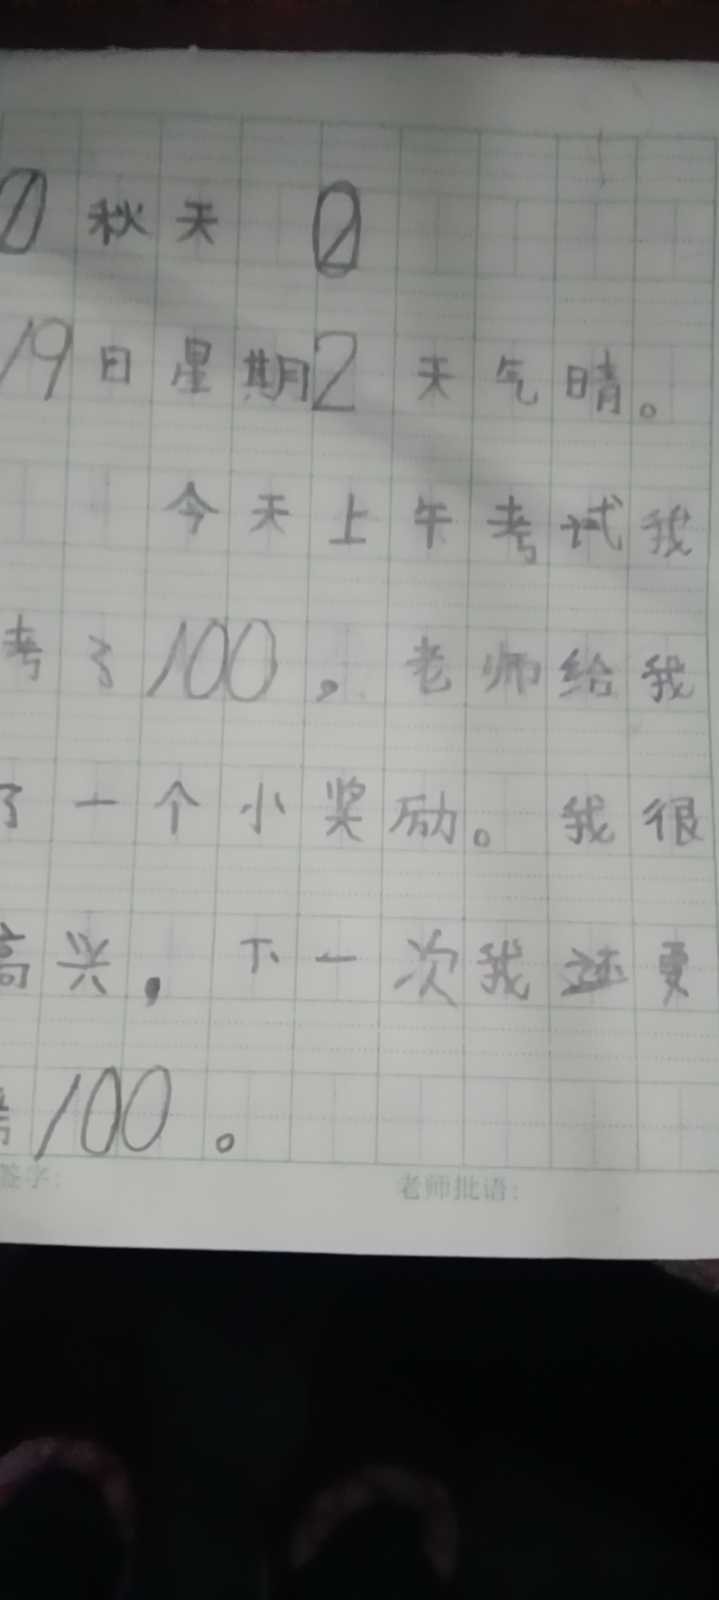 秋天
19日星期2 天气晴。
今天上午考试我
考了100，老师给我
了一个小奖励。我很
高兴，下一次我还要
考100。
签字： 老师批语：